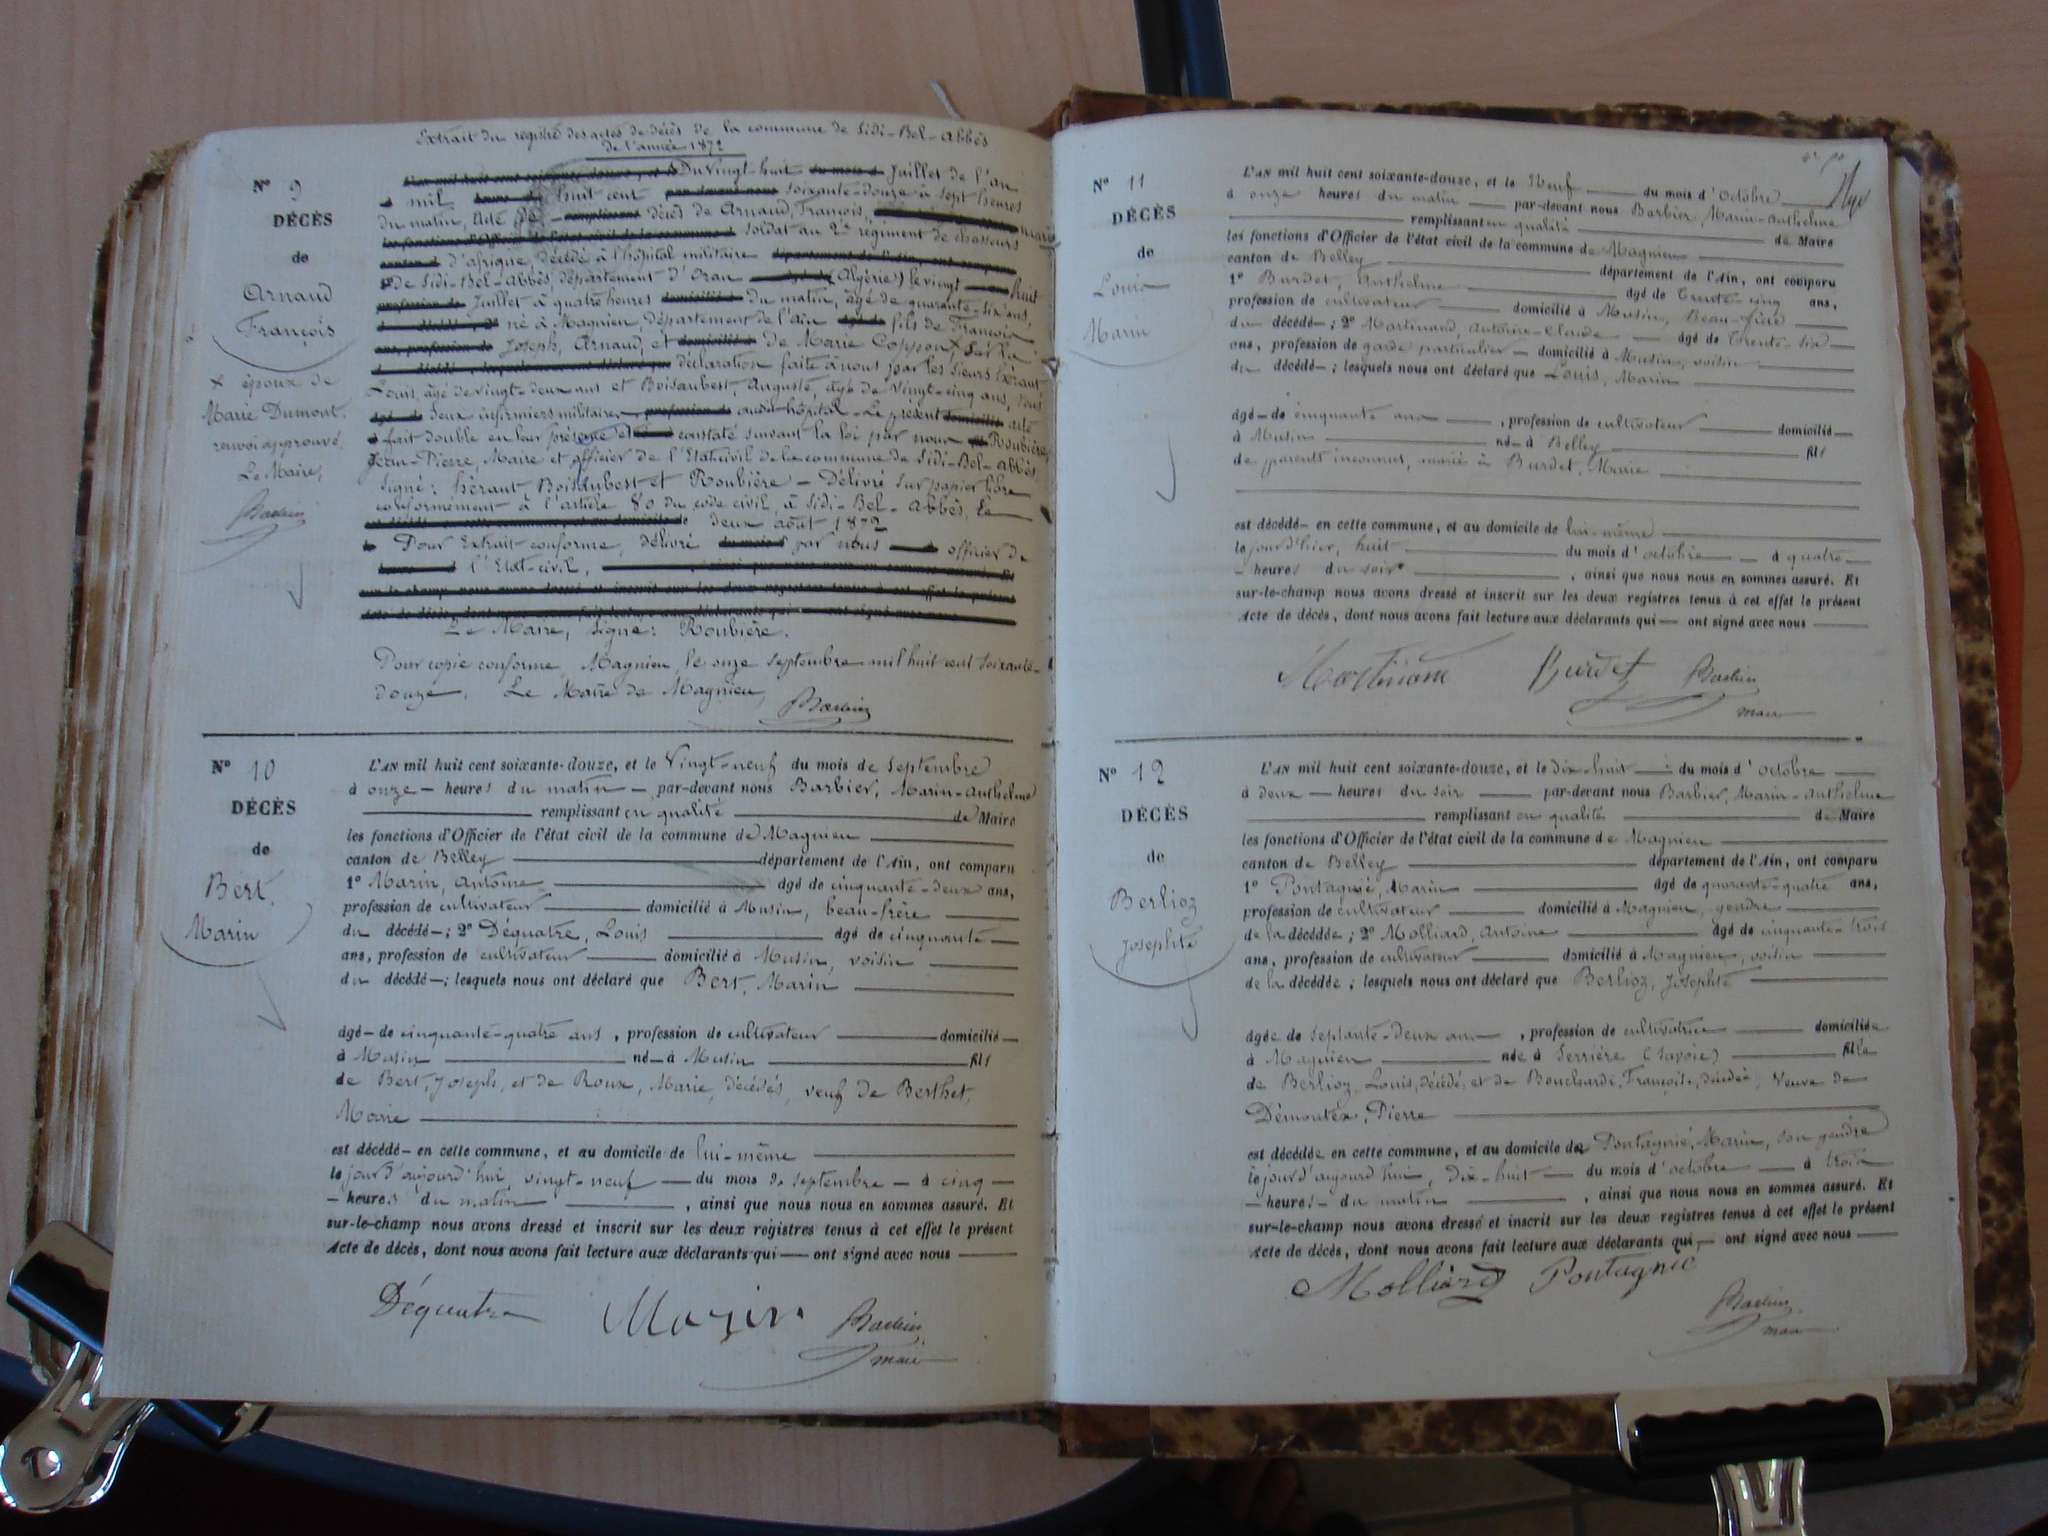 Extrait du registre des actes de décès de la commune de Sidi-Bel-Abbès
de l'année 1872
N° 9
DÉCÈS
de
Arnaud
François
x époux de
Marie Dumont.
renvoi approuvé.
Le Maire,
Barbier
Du vingt-huit Juillet de l'an
mil huit cent soixante-douze à sept heures
du matin, Acte de décès de Arnaud, François,
soldat au 2me régiment de chasseurs
d'afrique, décédé à l'hôpital militaire
de Sidi-Bel-Abbès, département d'Oran (Algérie) le vingt huit
Juillet à quatre heures du matin, âgé de quarante-six ans,
né à Magnieu, département de l'ain fils de François
Joseph, Arnaud, et de Marie x Sur la
déclaration faite à nous par les sieurs Héraut
Louis, âgé de vingt-deux ans et Boisaubest, Auguste, âgé de vingt-cinq ans, tous
deux infirmiers militaires audit hôpital - Le présent acte
fait double en leur présence et constaté suivant la loi par nous Roubière
Jean-Pierre, Maire et officier de l'Etat civil de la commune de Sidi-Bel-Abbès
Signé : Héraut Boisaubest et Roubière - Délivré sur papier libre
conformément à l'article 80 du code civil, à Sidi-Bel-Abbès, le
deux août 1872
Pour Extrait conforme, délivré par nous officier de
l'Etat-civil,
Le Maire, Signé : Roubière.
Pour copie conforme, Magnieu, le onze septembre mil huit cent soixante-
douze. Le Maire de Magnieu,
Barbier
N° 10
DÉCÈS
de
Bert.
Marin
L'AN mil huit cent soixante-douze, et le Vingt-neuf du mois de Septembre
à onze heures du matin par-devant nous Barbier, Marin-Anthelme
remplissant en qualité de Maire
les fonctions d'Officier de l'état civil de la commune de Magnieu
canton de Belley département de l'Ain, ont comparu
1° Marin, Antoine âgé de cinquante-deux ans,
profession de cultivateur domicilié à Musin, beau-frère
du décédé ; 2° Déquatre, Louis âgé de cinquante
ans, profession de cultivateur domicilié à Musin, voisin
du décédé ; lesquels nous ont déclaré que Bert, Marin
âgé de cinquante-quatre ans, profession de cultivateur domicilié
à Musin né à Musin fils
de Bert, Joseph, et de Roux, Marie, décédés, veuf de Berthet,
Marie
est décédé en cette commune, et au domicile de lui-même
le jour d'aujourd'hui, vingt-neuf du mois de septembre à cinq
heures du matin , ainsi que nous nous en sommes assuré. Et
sur-le-champ nous avons dressé et inscrit sur les deux registres tenus à cet effet le présent
Acte de décès, dont nous avons fait lecture aux déclarants qui ont signé avec nous
Déquatre Marin Barbier
maire
N° 11
DÉCÈS
de
Louis
Marin
L'AN mil huit cent soixante-douze, et le Neuf du mois d'octobre
à onze heures du matin par-devant nous Barbier, Marin-Anthelme
remplissant en qualité de Maire
les fonctions d'Officier de l'état civil de la commune de Magnieu
canton de Belley département de l'Ain, ont comparu
1° Burdet, Anthelme âgé de Trente-cinq ans,
profession de cultivateur domicilié à Musin, Beau-frère
du décédé ; 2° Martinand, Antoine-Claude âgé de Trente-six
ans, profession de garde particulier domicilié à Musin, voisin
du décédé ; lesquels nous ont déclaré que Louis, Marin
âgé de cinquante ans , profession de cultivateur domicilié
à Musin né à Belley fils
de parents inconnus, marié à Burdet, Marie
est décédé en cette commune, et au domicile de lui-même
le jour d'hier, huit du mois d'octobre à quatre
heures du soir , ainsi que nous nous en sommes assuré. Et
sur-le-champ nous avons dressé et inscrit sur les deux registres tenus à cet effet le présent
Acte de décès, dont nous avons fait lecture aux déclarants qui ont signé avec nous
Martinand Burdet Barbier
maire
N° 12
DÉCÈS
de
Berlioz
Josephte
L'AN mil huit cent soixante-douze, et le dix-huit du mois d'octobre
à deux heures du soir par-devant nous Barbier, Marin-Anthelme
remplissant en qualité de Maire
les fonctions d'Officier de l'état civil de la commune de Magnieu
canton de Belley département de l'Ain, ont comparu
1° Pontagnié, Marin âgé de quarante-quatre ans,
profession de cultivateur domicilié à Magnieu, gendre
de la décédée ; 2° Molliard, Antoine âgé de cinquante-trois
ans, profession de cultivateur domicilié à Magnieu, voisin
de la décédée ; lesquels nous ont déclaré que Berlioz, Josephte
âgée de septante-deux ans , profession de cultivatrice domiciliée
à Magnieu née à Serrière (Savoie) fille
de Berlioz, Louis, décédé, et de Bouchardi, Françoise, décédée, veuve de
Pierre
est décédée en cette commune, et au domicile de Pontagnié, Marin, son gendre
le jour d'aujourd'hui, dix-huit du mois d'octobre à trois
heures du matin , ainsi que nous nous en sommes assuré. Et
sur-le-champ nous avons dressé et inscrit sur les deux registres tenus à cet effet le présent
Acte de décès, dont nous avons fait lecture aux déclarants qui, ont signé avec nous
Molliard Pontagnié
Barbier
maire